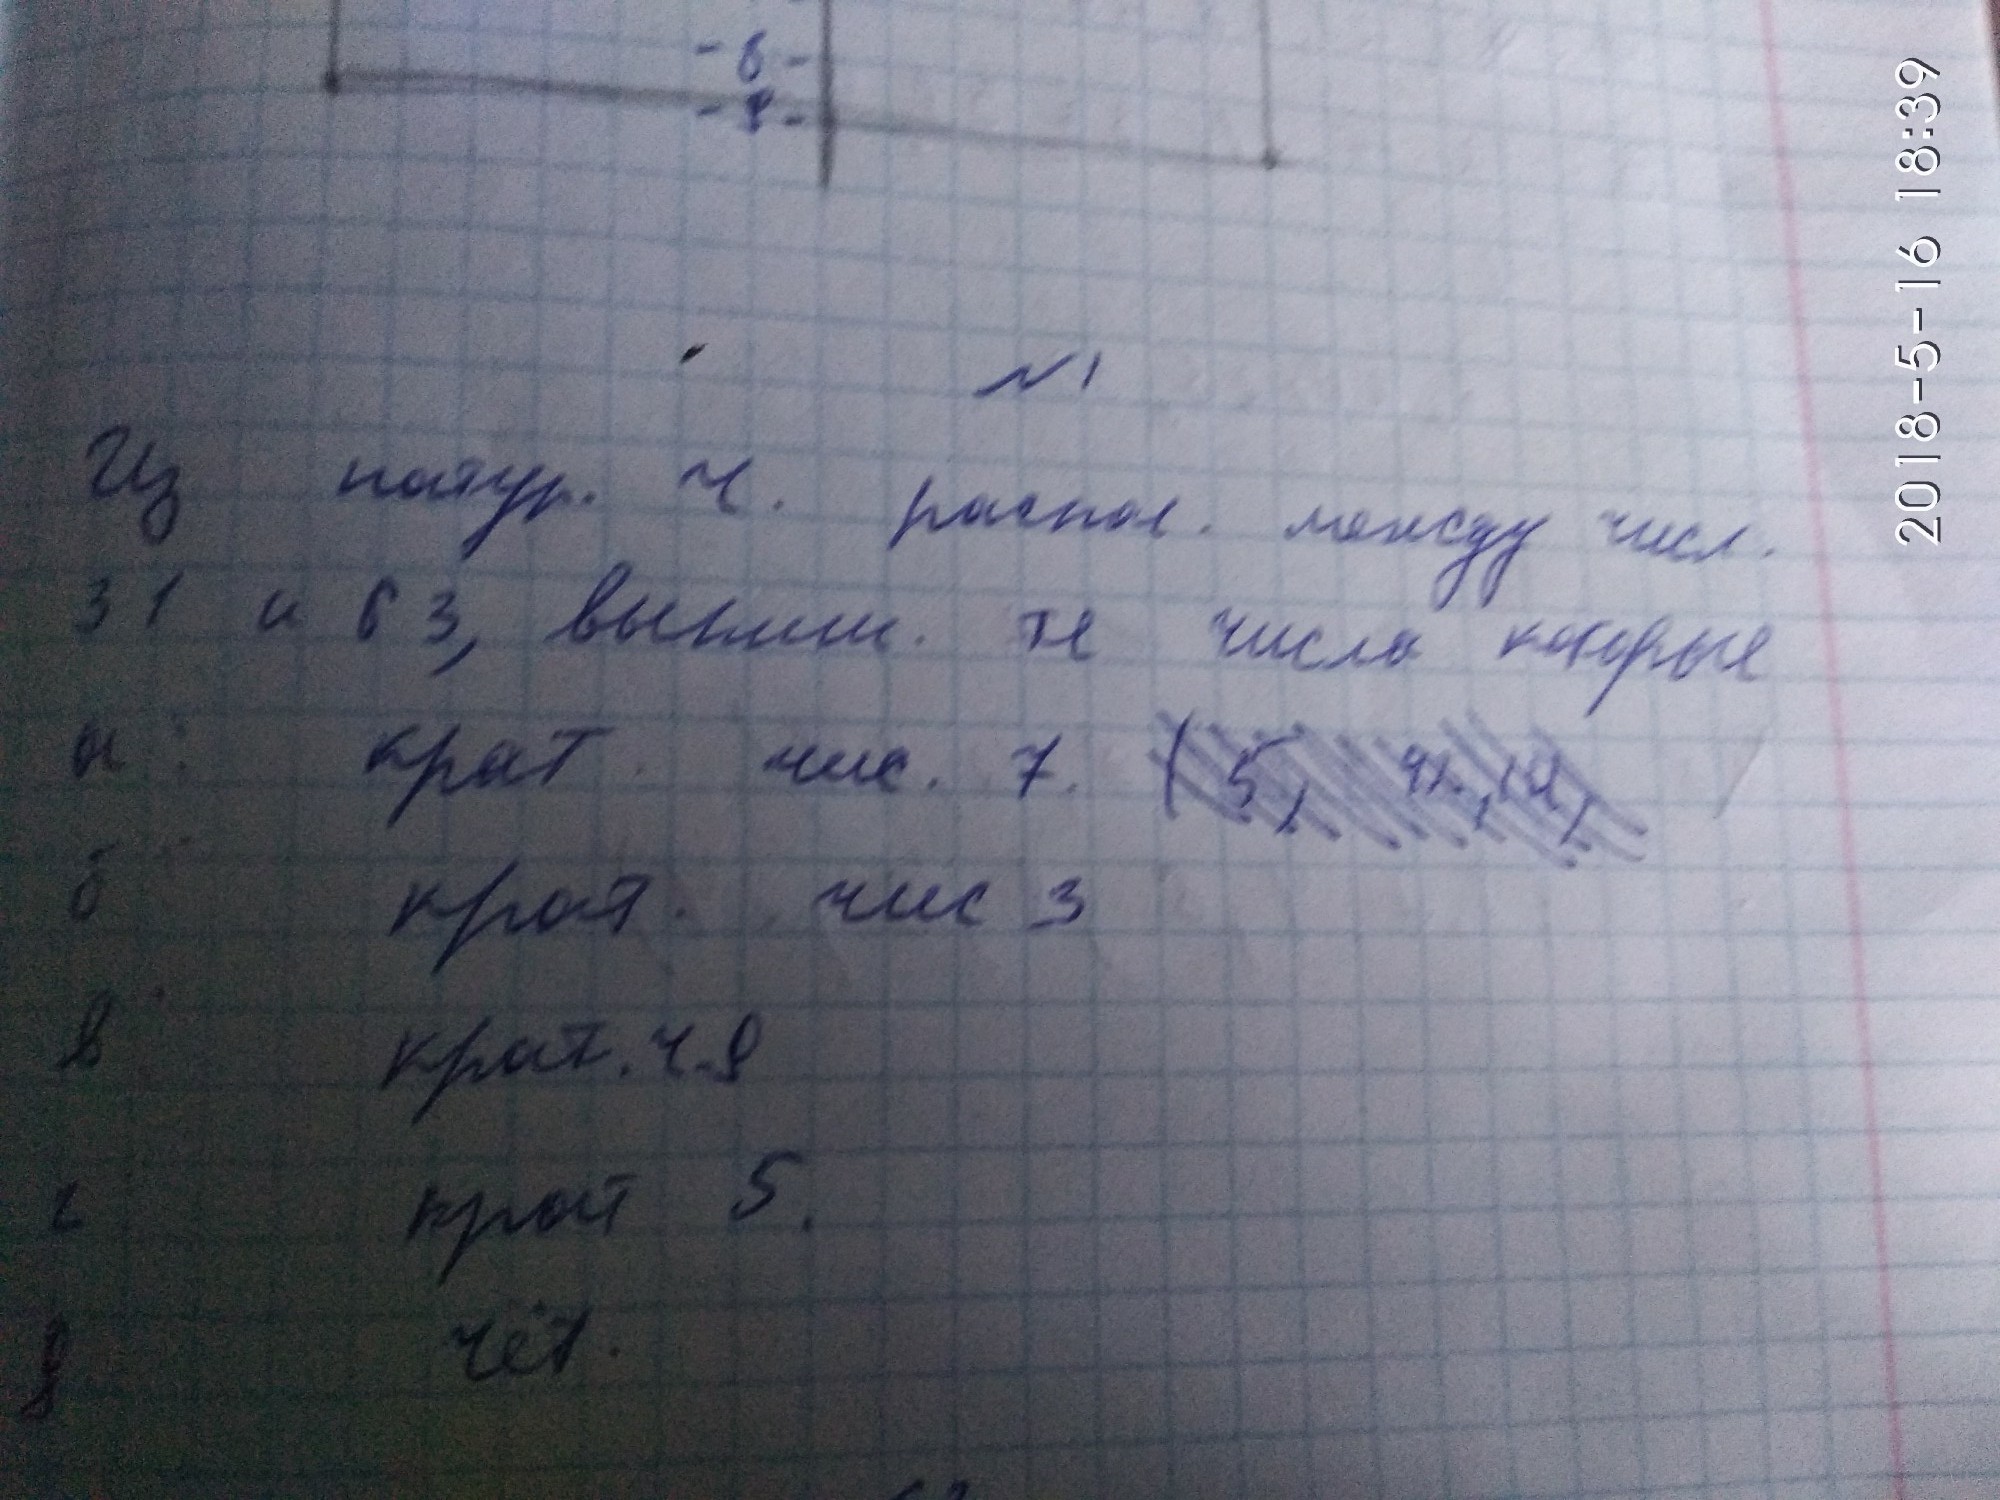 - 6 -
- 7 -
N1
Из натур. ч. распол. между числ.
31 и 63, выпиш. те числа которые
а: крат. чис. 7. (5,
б крат. чис 3
в крат. ч. 8
г крат 5.
д чёт.
2018-5-16 18:39